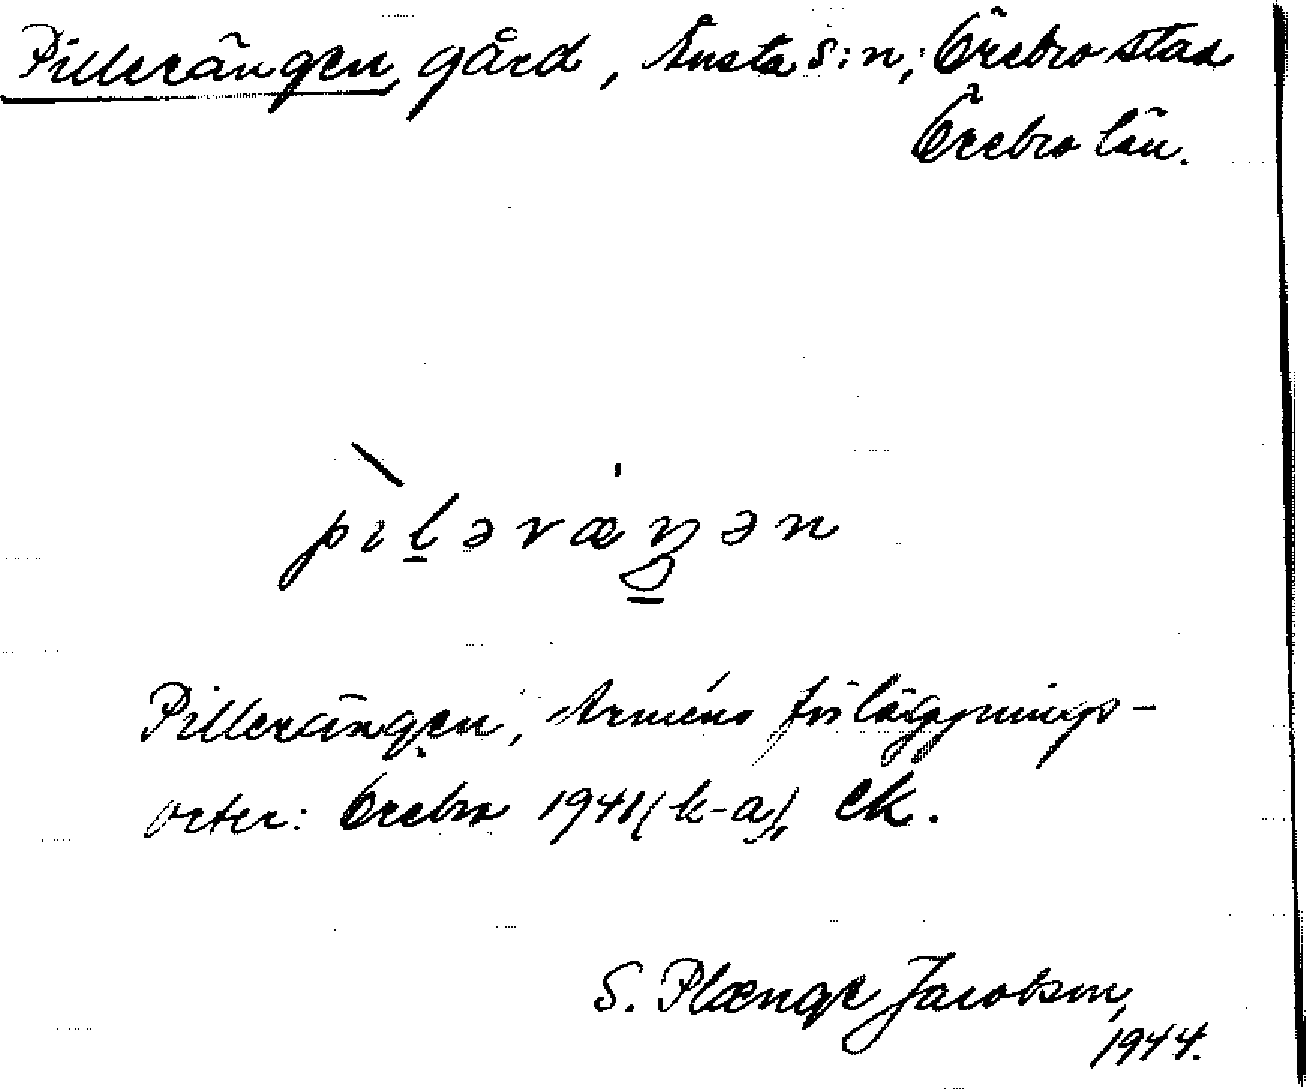 Pillerängen, gård, Ånsta s:n; Örebro stad
Örebro län.
pìləræŋən
Pillerängen, Arméns förläggnings-
orter: Örebro 1941 (k-a), EK.
S. Plænge Jacobson,
1944.